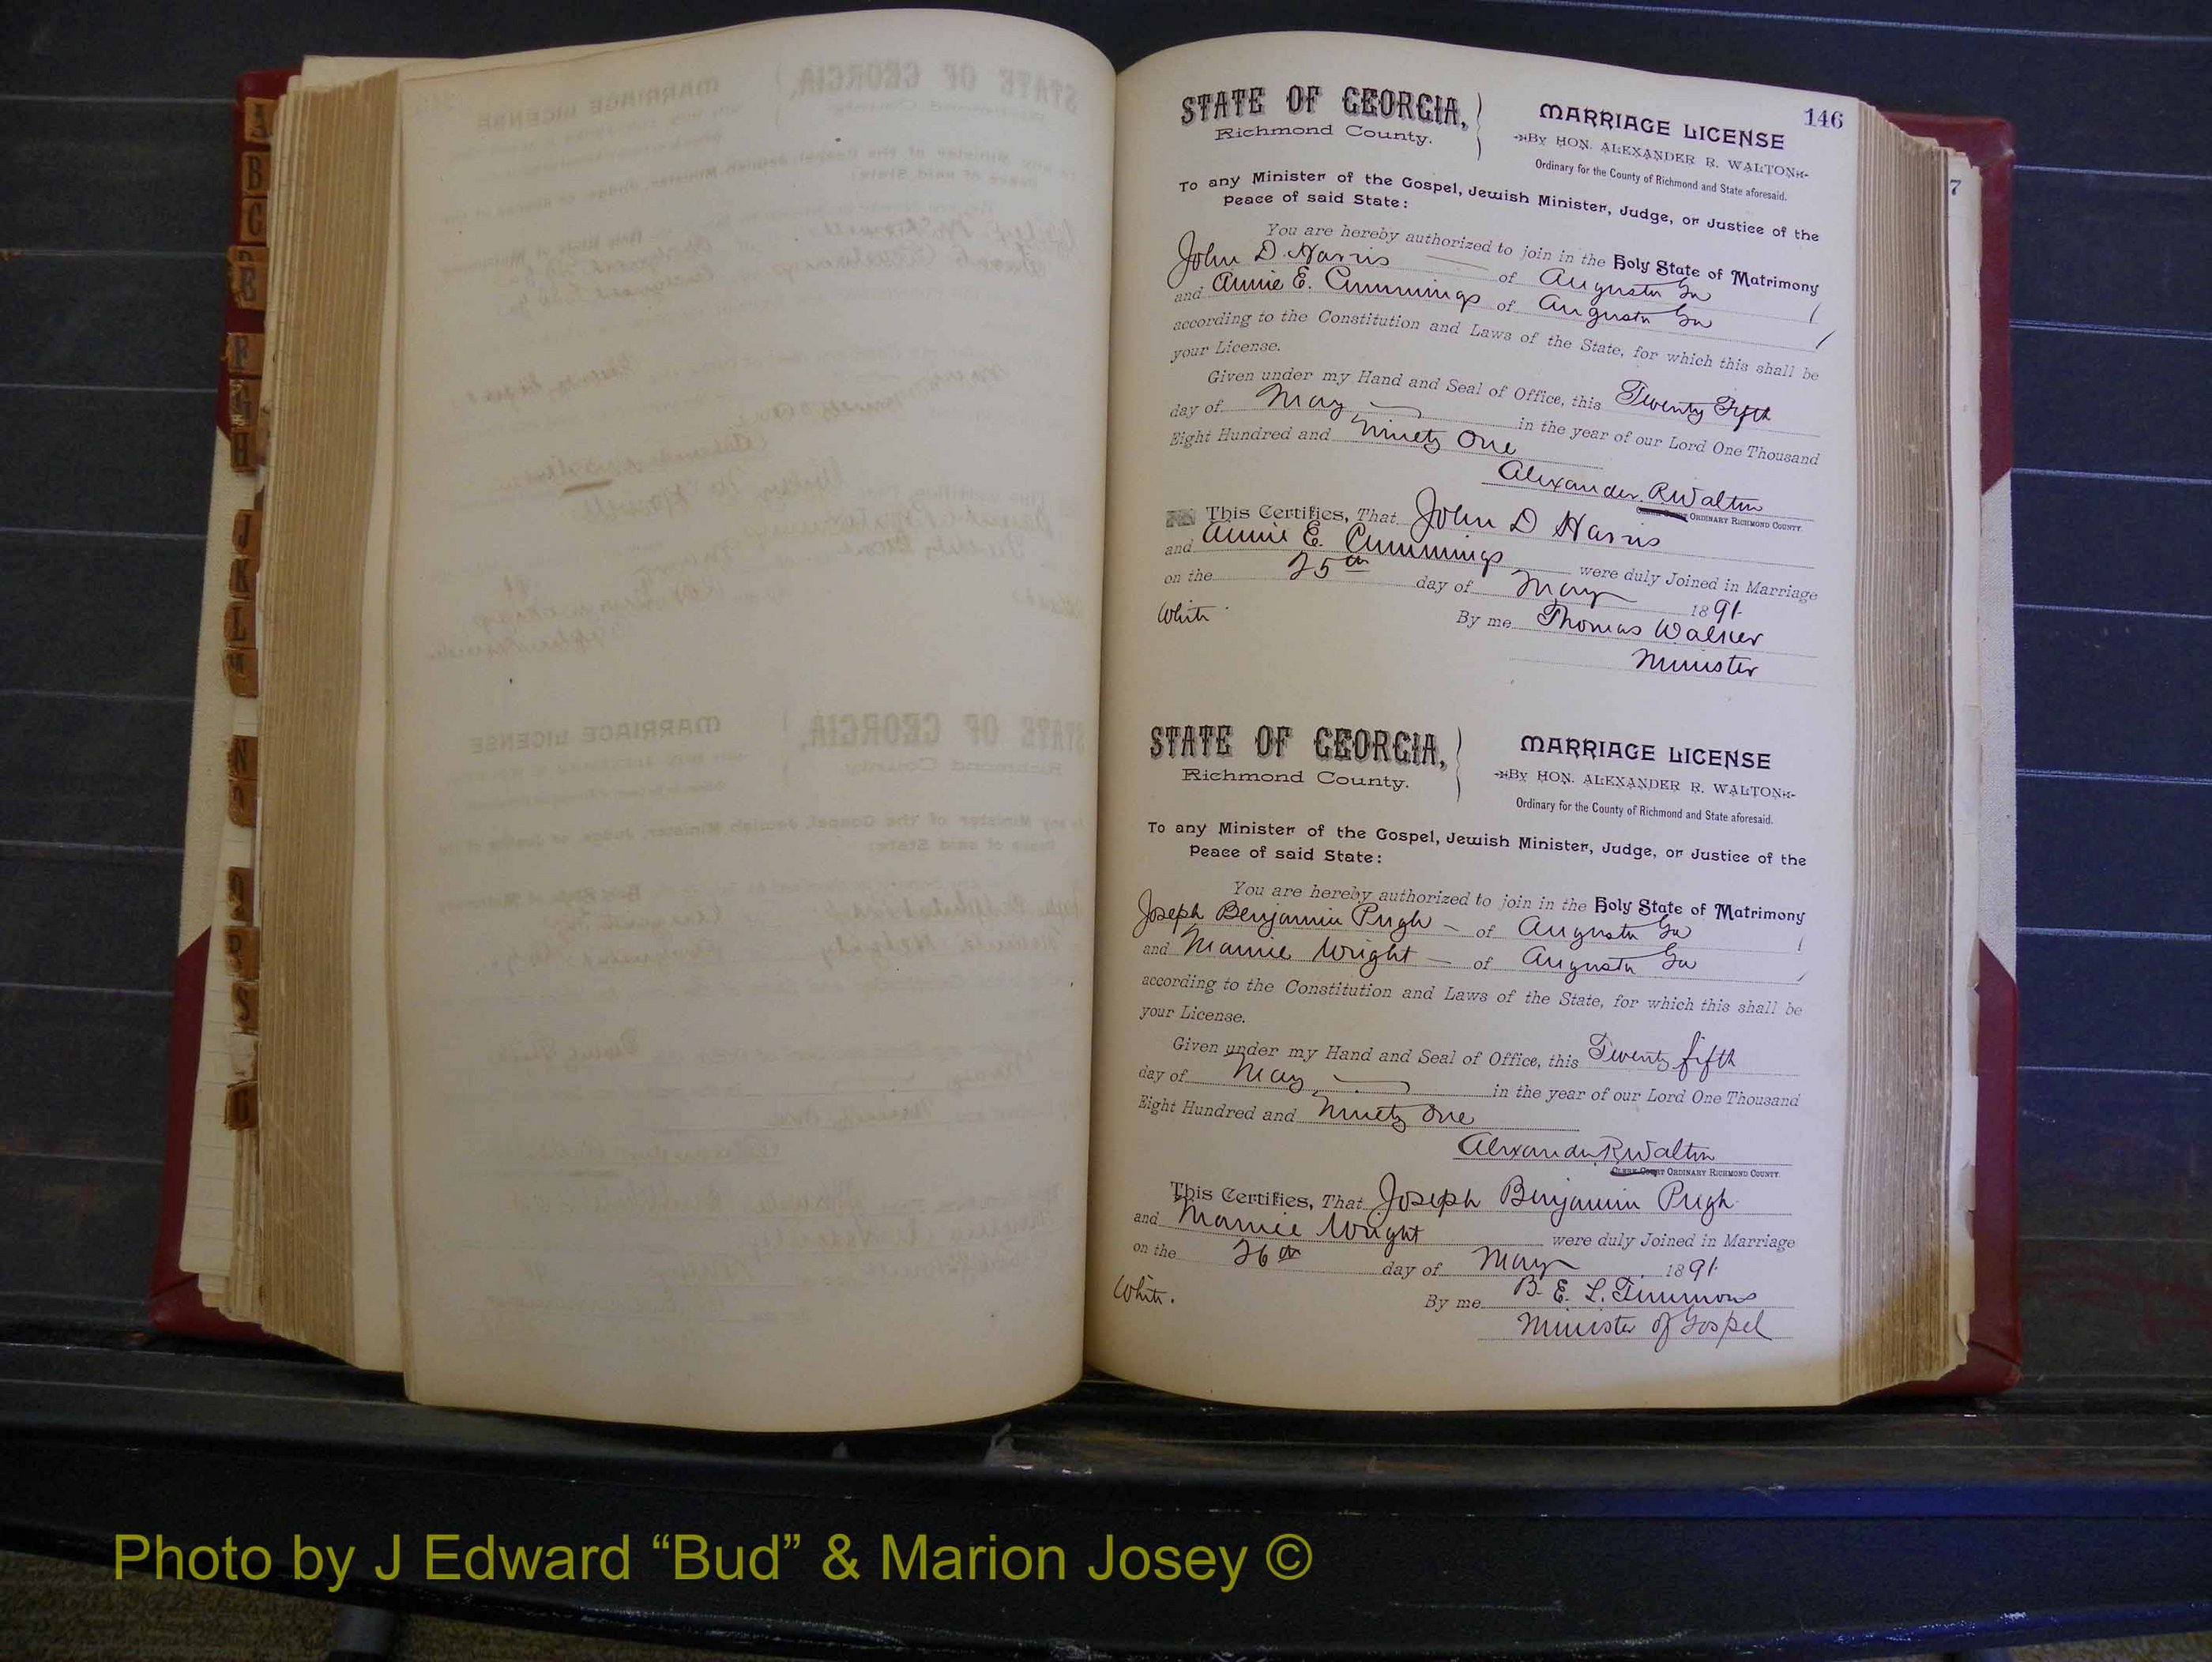 A
B
C
E
F
G
H
J
K
L
M
N
O
Q
R
S
146
7
STATE OF GEORGIA,
Richmond County.
MARRIAGE LICENSE
By HON. ALEXANDER R. WALTON
Ordinary for the County of Richmond and State aforesaid.
To any Minister of the Gospel, Jewish Minister, Judge, or Justice of the
Peace of said State:
You are hereby authorized to join in the Holy State of Matrimony
John D. Harris of Augusta Ga
and Annie E. Cummings of Augusta Ga
according to the Constitution and Laws of the State, for which this shall be
your License.
Given under my Hand and Seal of Office, this Twenty Fifth
day of May in the year of our Lord One Thousand
Eight Hundred and Ninety One
Alexander R Walton
ORDINARY RICHMOND COUNTY.
This Certifies, That John D Harris
and Annie E. Cummings were duly Joined in Marriage
on the 25th day of May 1891.
White By me Thomas Walker
Minister
STATE OF GEORGIA,
Richmond County.
MARRIAGE LICENSE
By HON. ALEXANDER R. WALTON
Ordinary for the County of Richmond and State aforesaid.
To any Minister of the Gospel, Jewish Minister, Judge, or Justice of the
Peace of said State:
You are hereby authorized to join in the Holy State of Matrimony
Joseph Benjamin Pugh of Augusta Ga
and Mamie Wright of Augusta Ga
according to the Constitution and Laws of the State, for which this shall be
your License.
Given under my Hand and Seal of Office, this Twenty fifth
day of May in the year of our Lord One Thousand
Eight Hundred and Ninety One
Alexander R Walton
CLERK COURT ORDINARY RICHMOND COUNTY.
This Certifies, That Joseph Benjamin Pugh
and Mamie Wright were duly Joined in Marriage
on the 26th day of May 1891.
White. By me B. E. L. Timmons
Minister of Gospel
Photo by J Edward “Bud” & Marion Josey ©